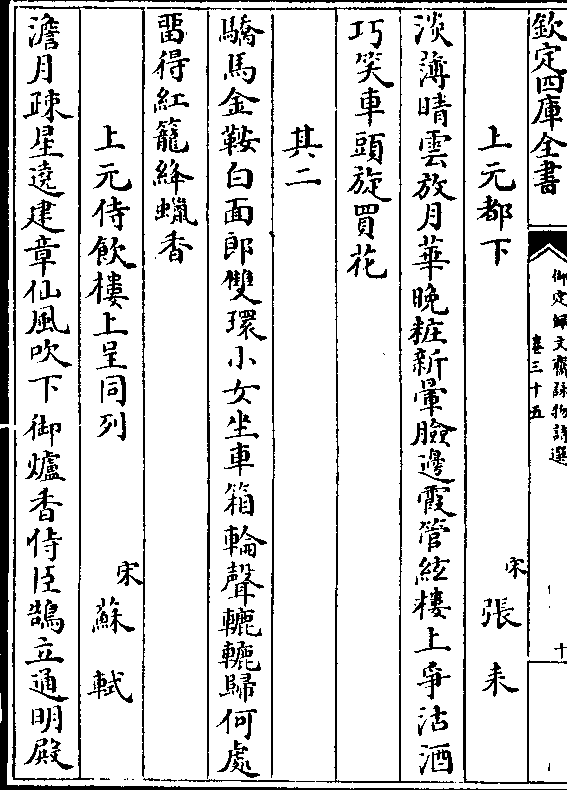 欽定四庫全書
御定歸文齋詠物詩選
卷三十五
十
上元都下
宋
張耒
淡薄晴雲放月華晚粧新暈臉邊霞管絃樓上爭沽酒
巧笑車頭旋買花
其二
驕馬金鞍白面郎雙環小女坐車箱輪聲轆轆歸何處
留得紅籠絳蠟香
上元侍飲樓上呈同列
宋
蘇軾
澹月疎星遶建章仙風吹下御爐香侍臣鵠立通明殿